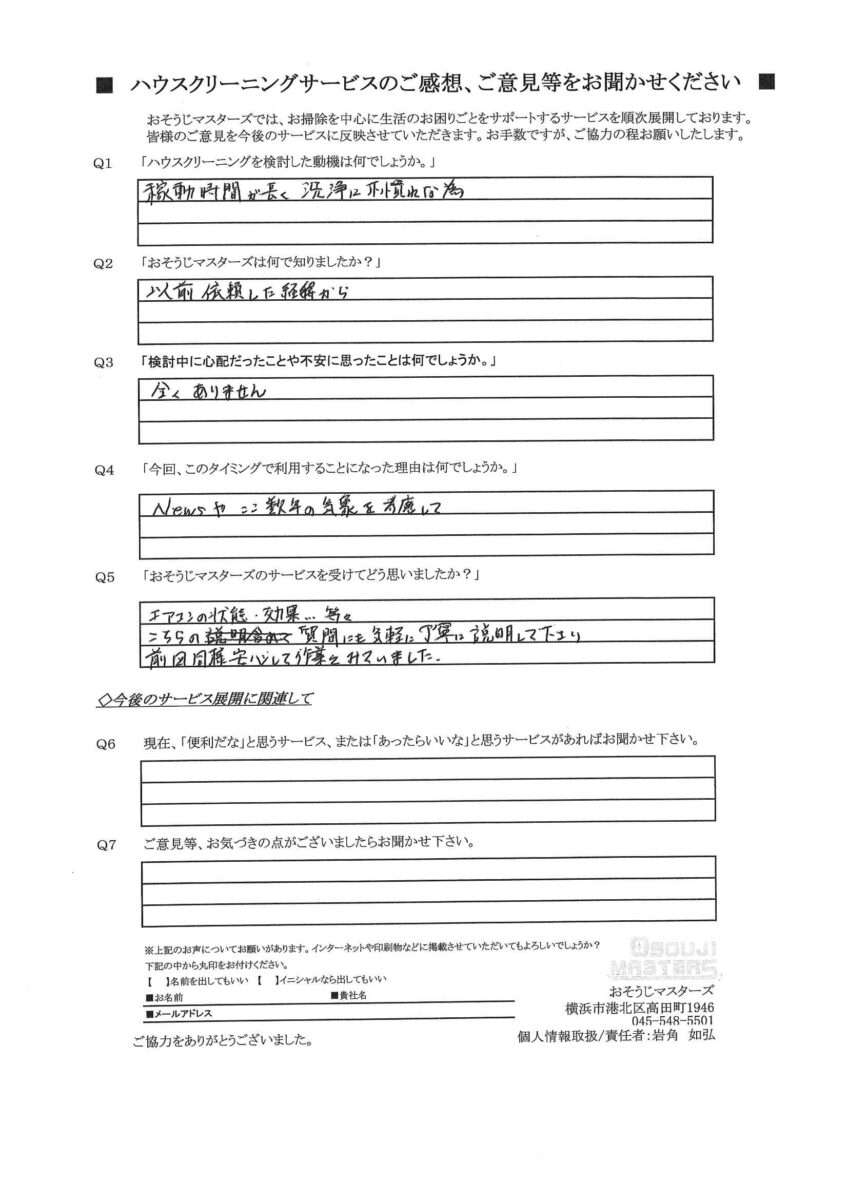 ■ ハウスクリーニングサービスのご感想、ご意見等をお聞かせください ■
おそうじマスターズでは、お掃除を中心に生活のお困りごとをサポートするサービスを順次展開しております。
皆様のご意見を今後のサービスに反映させていただきます。お手数ですが、ご協力の程お願いしたします。
Q1 「ハウスクリーニングを検討した動機は何でしょうか。」
稼動時間が長く 洗浄に不慣れな為
Q2 「おそうじマスターズは何で知りましたか？」
以前依頼した経緯から
Q3 「検討中に心配だったことや不安に思ったことは何でしょうか。」
全くありません
Q4 「今回、このタイミングで利用することになった理由は何でしょうか。」
Newsや ここ数年の気象を考慮して
Q5 「おそうじマスターズのサービスを受けてどう思いましたか？」
エアコンの状態・効果… 等々
こちらの 質問にも気軽に丁寧に説明して下さり
前回同様安心して作業を みていました.
◇今後のサービス展開に関連して
Q6 現在、「便利だな」と思うサービス、または「あったらいいな」と思うサービスがあればお聞かせ下さい。
Q7 ご意見等、お気づきの点がございましたらお聞かせ下さい。
※上記のお声についてお願いがあります。インターネットや印刷物などに掲載させていただいてもよろしいでしょうか？
下記の中から丸印をお付けください。
【　】名前を出してもいい 【　】イニシャルなら出してもいい
■お名前 ■貴社名
■メールアドレス
ご協力をありがとうございました。
OSOUJI
MASTERS
おそうじマスターズ
横浜市港北区高田町1946
045-548-5501
個人情報取扱/責任者：岩角 如弘